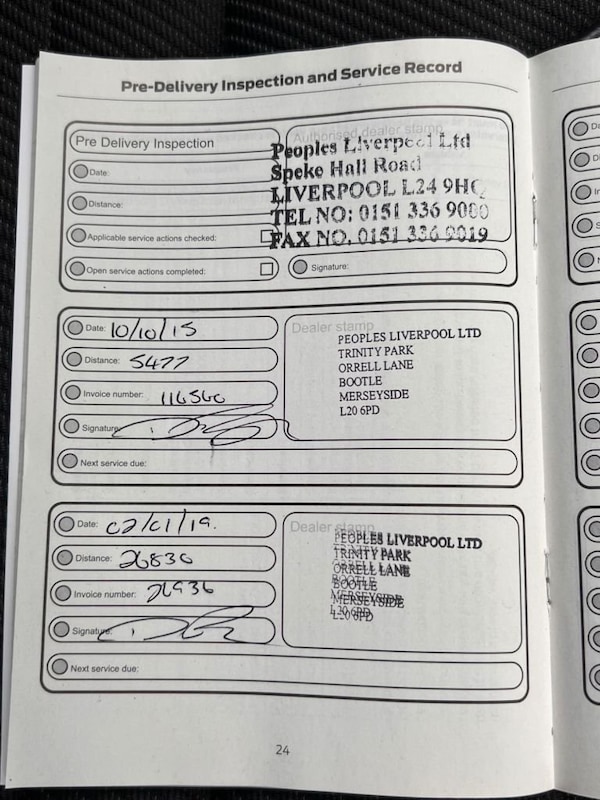 Pre-Delivery Inspection and Service Record
Pre Delivery Inspection
Date:
Distance:
Applicable service actions checked:
Open service actions completed:
Authorised dealer stamp
Peoples Liverpool Ltd
Speke Hall Road
LIVERPOOL L24 9HQ
TEL NO: 0151 336 9000
FAX NO. 0151 336 9019
Signature:
Date: 10/10/15
Distance: 5477
Invoice number: 116560
Signature:
Next service due:
Dealer stamp
PEOPLES LIVERPOOL LTD
TRINITY PARK
ORRELL LANE
BOOTLE
MERSEYSIDE
L20 6PD
Date: 02/01/19.
Distance: 26830
Invoice number:
Signature:
Next service due:
Dealer stamp
PEOPLES LIVERPOOL LTD
TRINITY PARK
ORRELL LANE
BOOTLE
MERSEYSIDE
L20 6PD
24